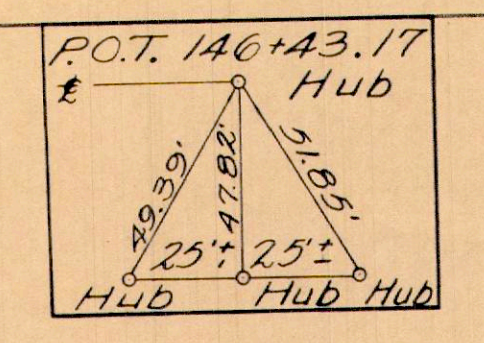 P.O.T. 146+43.17
℄ Hub
49.39'
47.82'
51.85'
25'± 25'±
Hub Hub Hub